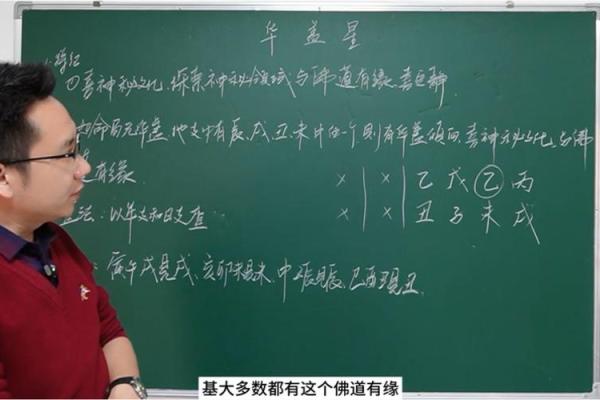 华盖星
特征
①喜神秘文化、探索神秘领域与佛道有缘、喜
命局无华盖、地支中有辰、戌、丑、未中的一个、则有华盖倾向、喜神秘文化、与佛
有缘.
× | × | 乙 戊 乙 丙
法：以年支和日支查
× | × | 丑 子 未 戌
寅午戌见戌、亥卯未见未、申子辰见辰、巳酉丑见丑.
基大多数都有这个佛道有缘